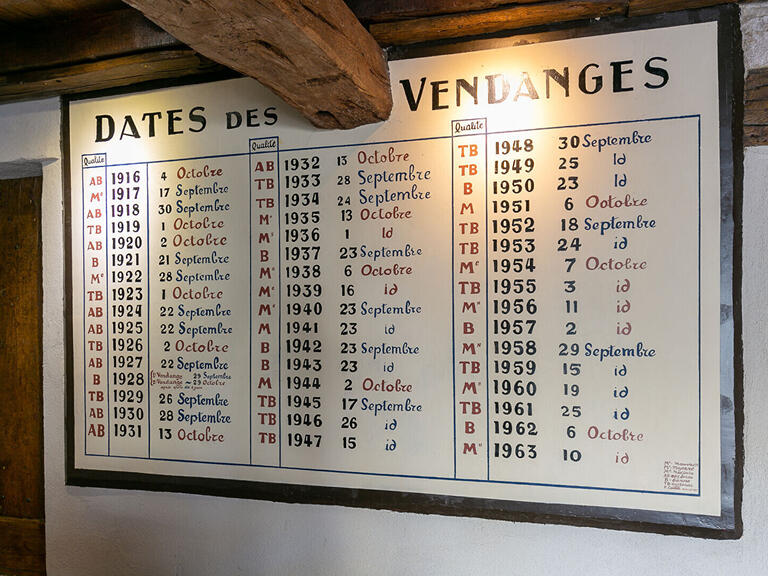 DATES DES VENDANGES
Qualité
AB 1916 4 Octobre
Mᵉ 1917 17 Septembre
AB 1918 30 Septembre
TB 1919 1 Octobre
AB 1920 2 Octobre
B 1921 21 Septembre
Mᵉ 1922 28 Septembre
TB 1923 1 Octobre
AB 1924 22 Septembre
AB 1925 22 Septembre
TB 1926 2 Octobre
AB 1927 22 Septembre
B 1928 1ᵉ Vendange 29 Septembre
2ᵉ Vendange ~ 29 Octobre
TB 1929 26 Septembre
AB 1930 28 Septembre
AB 1931 13 Octobre
Qualité
AB 1932 13 Octobre
TB 1933 28 Septembre
TB 1934 24 Septembre
1935 13 Octobre
1936 1 Id
B 1937 23 Septembre
1938 6 Octobre
1939 16 id
1940 23 Septembre
M 1941 23 id
B 1942 23 Septembre
B 1943 23 id
M 1944 2 Octobre
TB 1945 17 Septembre
TB 1946 26 id
TB 1947 15 id
Qualité
TB 1948 30 Septembre
TB 1949 25 Id
B 1950 23 Id
M 1951 6 Octobre
TB 1952 18 Septembre
TB 1953 24 id
Mᵉ 1954 7 Octobre
TB 1955 3 id
1956 11 id
B 1957 2 id
1958 29 Septembre
TB 1959 15 id
1960 19 id
TB 1961 25 id
B 1962 6 Octobre
1963 10 id